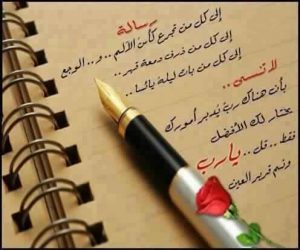 رسالة
إلى كل من تجرع كأس الألم .. و .. الوجع
إلى كل من ذرف دمعة قهر ..
إلى كل من بات ليلة يائسا ..
لا تنسى ..
بأن هناك رب يُدبر أمورك
يختار لك الأفضل
فقط .. قل .. يارب
ونم قرير العين